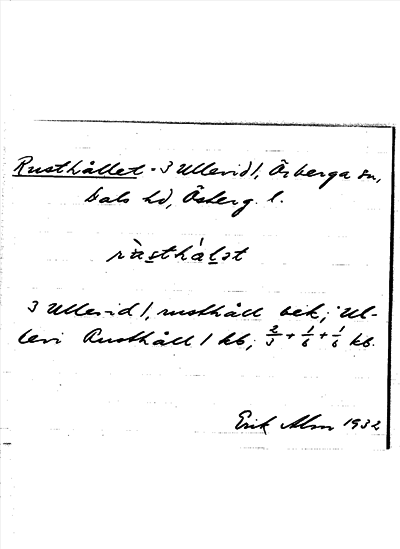 Rusthållet - 3 Ullevid 1, Örberga sn,
Dals hd, Österg. l.
ràsthálət
3 Ullevid 1, rusthåll bek; "Ul-
levi Rusthåll 1 kb; 2/3 + 1/6 + 1/6 kb.
Erik Alm 1932